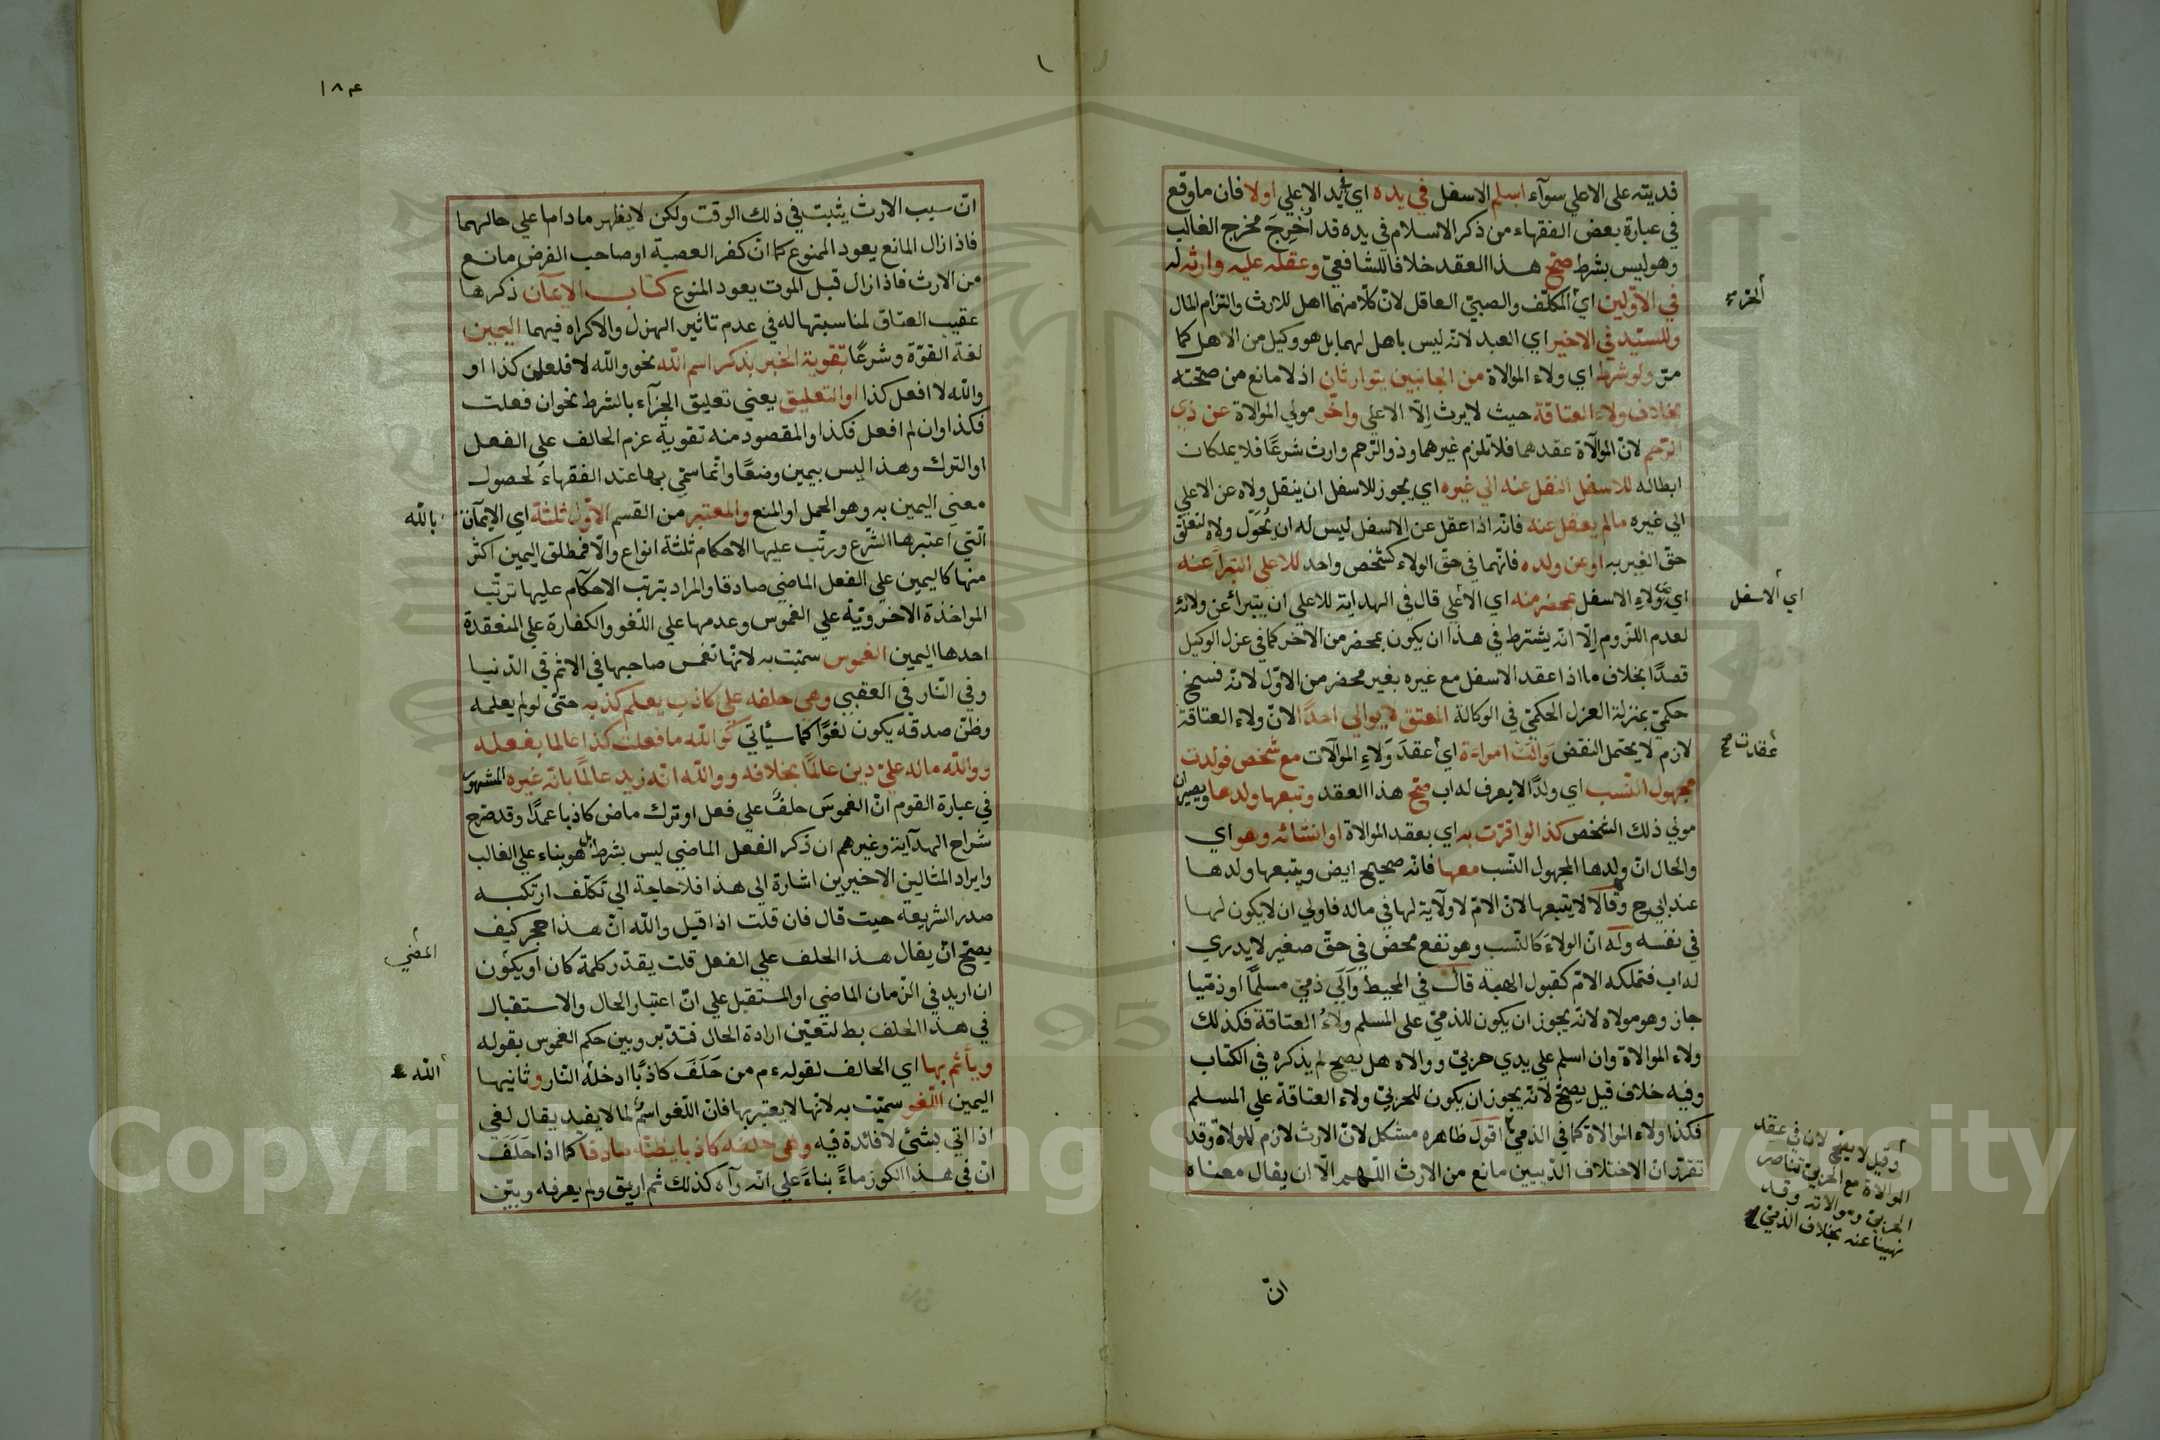 فديته على الاعلي سوآء اسلم الاسفل في يده اي يد الاعلي اولا فان ما وقع
في عبارة بعض الفقهاء من ذكر الاسلام في يده قد اُخرِجَ مخرج الغالب
وهو ليس بشرط صح هذا العقد خلافا للشافعيّ وعقله عليه وارثه له
في الاوّلين اي المكلّف والصبيّ العاقل لانّ كلّا منهما اهل للارث والتزام المال
وللسيّد في الاخير اي العبد لانه ليس باهل لهما بل هو وكيل من الاهل كما
مرّ ولو شرط اي ولاء الموالاة من الجانبين يتوارثان اذ لا مانع من صحّته
بخلاف ولاء العتاقة حيث لا يرث الّا الاعلي واخّر مولي الموالاة عن ذي
الرّحم لانّ الموالاة عقدهما فلا تلزم غيرهما وذو الرّحم وارث شرعًا فلا يملكان
ابطاله للاسفل النقل عنه الي غيره اي يجوز للاسفل ان ينقل ولاه عن الاعلي
الي غيره ما لم يعقل عنه فانّه اذا عقل عن الاسفل ليس له ان يُحَوّل ولاه لتعلّق
حقّ الغير به او عن ولده فانّهما في حقّ الولاء كشخص واحد للاعلي التبرأ عنه
اي عن ولاء الاسفل بمحضر منه اي الاعلي قال في الهداية للاعلي ان يتبرأ عن ولائه
لعدم اللزوم الّا انّه يشترط في هذا ان يكون بمحضر من الاخر كما في عزل الوكيل
قصدًا بخلاف ما اذا عقد الاسفل مع غيره بغير محضر من الاوّل لانّه فسخ
حكميّ بمنزلة العزل الحكميّ في الوكالة المعتق لا يوالي احدًا لانّ ولاء العتاقة
لازم لا يحتمل النقض وَالَت امراءة اي عقدَ وَلاءِ الموالات مع شخص فولدت
مجهول النّسب اي ولدًا لا يعرف له اب صحّ هذا العقد وتبعها ولدها ويصيران
مولي ذلك الشخص كذا لو اقرّت به اي بعقد الموالاة او انشائه وهو اي
والحال انّ ولدها المجهول النّسب معها فانّه صحيح ايض ويتبعها ولدها
عند ابي ح وقالا لا يتبعها لانّ الامّ لا ولاية لها في ماله فاولي ان لا يكون لها
في نفسه وله انّ الولاءَ كالنّسب وهو نفع محض في حقّ صغير لا يدري
له اب فتملكه الامّ كقبول الهبة قال في المحيط وَالَي ذميّ مسلمًا او ذمّيا
جاز وهو مولاه لانّه يجوز ان يكون للذميّ على المسلم ولاءُ العتاقة فكذلك
ولاء الموالاة وان اسلم علي يدي حربيّ ووالاه هل يصح لم يذكره في الكتاب
وفيه خلاف قيل يصحّ لانّه يجوز ان يكون للحربيّ ولاء العتاقة علي المسلم
فكذا ولاء الموالاة كما في الذميّ اقول ظاهره مشكل لانّ الارث لازم للولاة وقد
تقرّر انّ الاختلاف الدّينين مانع من الارث اللّهم الّا ان يقال معناه
اي الاسفل
عقدت صح
وقيل لا يصحّ لان في عقد
الموالاة مع الحربيّ تناصر
الحربيّ وموالاته وقد
نهينا عنه بخلاف الذميّ
انّ
١٨٤
انّ سبب الارث يثبت في ذلك الوقت ولكن لا يظهر ما داما علي حالهما
فاذا زال المانع يعود الممنوع كما انّ كفر العصبة او صاحب الفرض مانع
من الارث فاذا زال قبل الموت يعود الممنوع كتاب الايمان ذكرها
عقيب العتاق لمناسبتها له في عدم تاثير الهزل والاكراه فيهما اليمين
لغة القوّة وشرعًا تقوية الخبر بذكر اسم اللّه نحو واللّه لافعلنّ كذا او
واللّه لا افعل كذا او التعليق يعني تعليق الجزآء بالشرط نحو ان فعلت
فكذا وان لم افعل فكذا والمقصود منه تقوية عزم الحالف علي الفعل
او الترك وهذا ليس بيمين وضعًا وانّما سمّي بها عند الفقهاء لحصول
معني اليمين به وهو الحمل او المنع والمعتبر من القسم الاوّل ثلثة اي الايمآن
الّتي اعتبرها الشّرع ورتّب عليها الاحكام ثلثة انواع والّا فمطلق اليمين اكثر
منها كاليمين علي الفعل الماضي صادقا والمراد بترتب الاحكام عليها ترتّب
المواخذة الاخرويّة علي الغموس وعدمها علي اللّغو والكفارة علي المنعقدة
احدها اليمين الغموس سمّيت به لانّها تغمس صاحبها في الاثم في الدّنيا
وفي النّار في العقبي وهي حلفه علي كاذب يعلم كذبه حتّي لو لم يعلمه
وظنّ صدقه يكون لغوًا كما سيأتي كواللّه ما فعلت كذا عالما بفعله
وواللّه ماله عليّ دين عالمًا بخلافه وواللّه انّه زيد عالمًا بانّه غيره المشهور
في عبارة القوم انّ الغموسَ حلفٌ علي فعل او ترك ماض كاذبا عمدًا وقد صرّح
شراح الهدآية وغيرهم ان ذكر الفعل الماضي ليس بشرط بل هو بناء علي الغالب
وايراد المثالين الاخيرين اشارة الي هذا فلا حاجة الي تكلّف ارتكبه
صدر الشريعة حيث قال فان قلت اذا قيل واللّه انّ هذا حجر كيف
يصحّ انّ يقال هذا الحلف علي الفعل قلت يقدّر كلمة كان او يكون
ان اريد في الزّمان الماضي او المستقبل علي انّ اعتبار الحال والاستقبال
في هذا الحلف بط لتعيّن ارادة الحال فتدّبر وبين حكم الغموس بقوله
ويأثم بها اي الحالف لقوله ءم من حَلَفَ كاذبًا ادخله النّار وثانيها
اليمين اللّغو سمّيت به لانّها لا يعتبر بها فانّ اللّغو اسمٌ لما لا يفيد يقال لغي
اذا اتي بشيئ لا فائدة فيه وهي حلفه كاذبا يضنّه صادقا كما اذا حَلَفَ
انّ في هذا الكوز ماءً بناءً علي انّه رآه كذلك ثم اريق ولم يعرفه وبيّن
باللّه
المضي
اللّه
Copyright © King Saud University